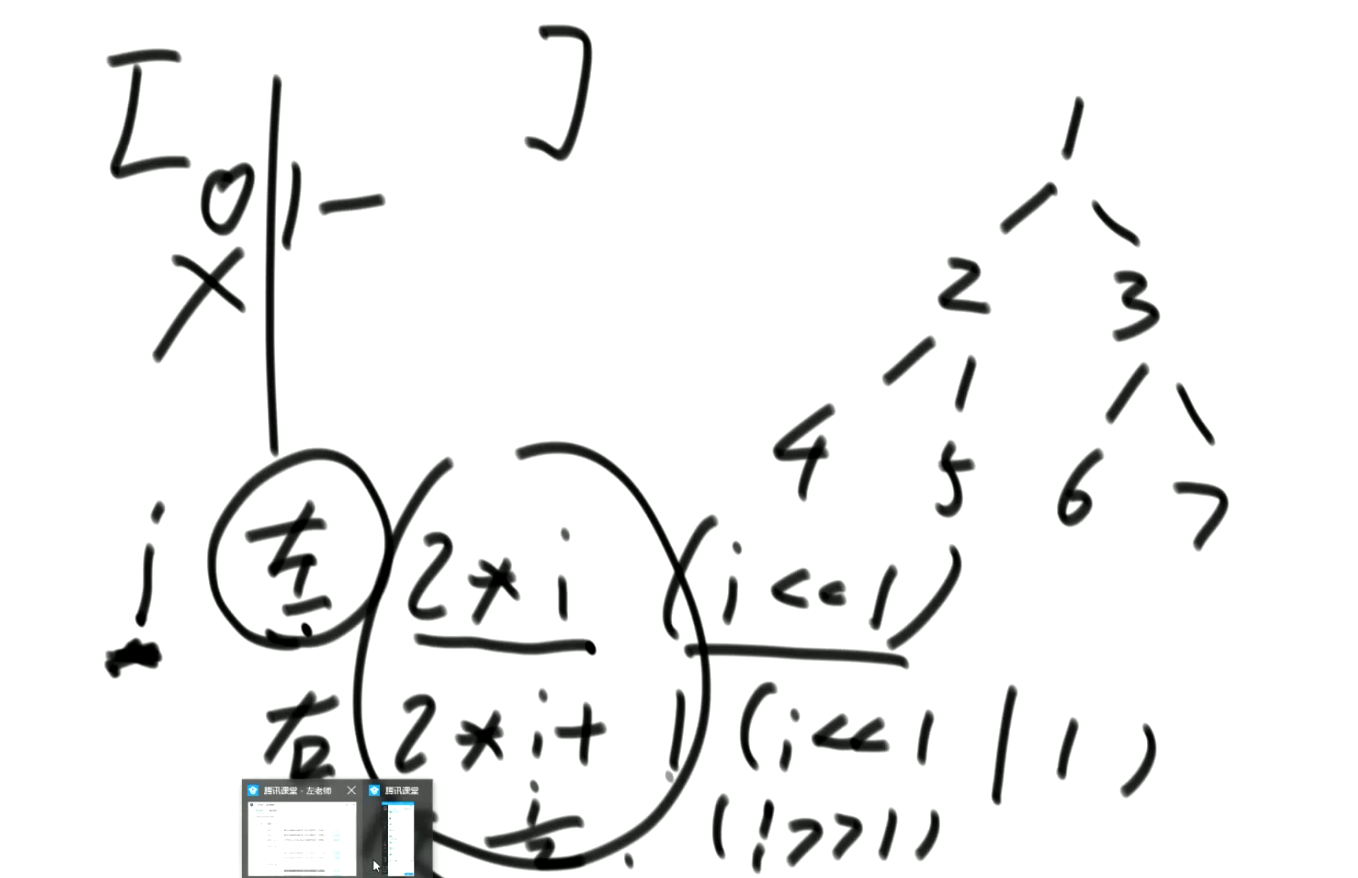 [ ]
0 | 1 -
X
1
2 3
4 5 6 7
i 左 2*i (i<<1)
右 2*i+1 (i<<1 | 1)
i/2 (i>>1)
腾讯课堂 - 左老师 腾讯课堂